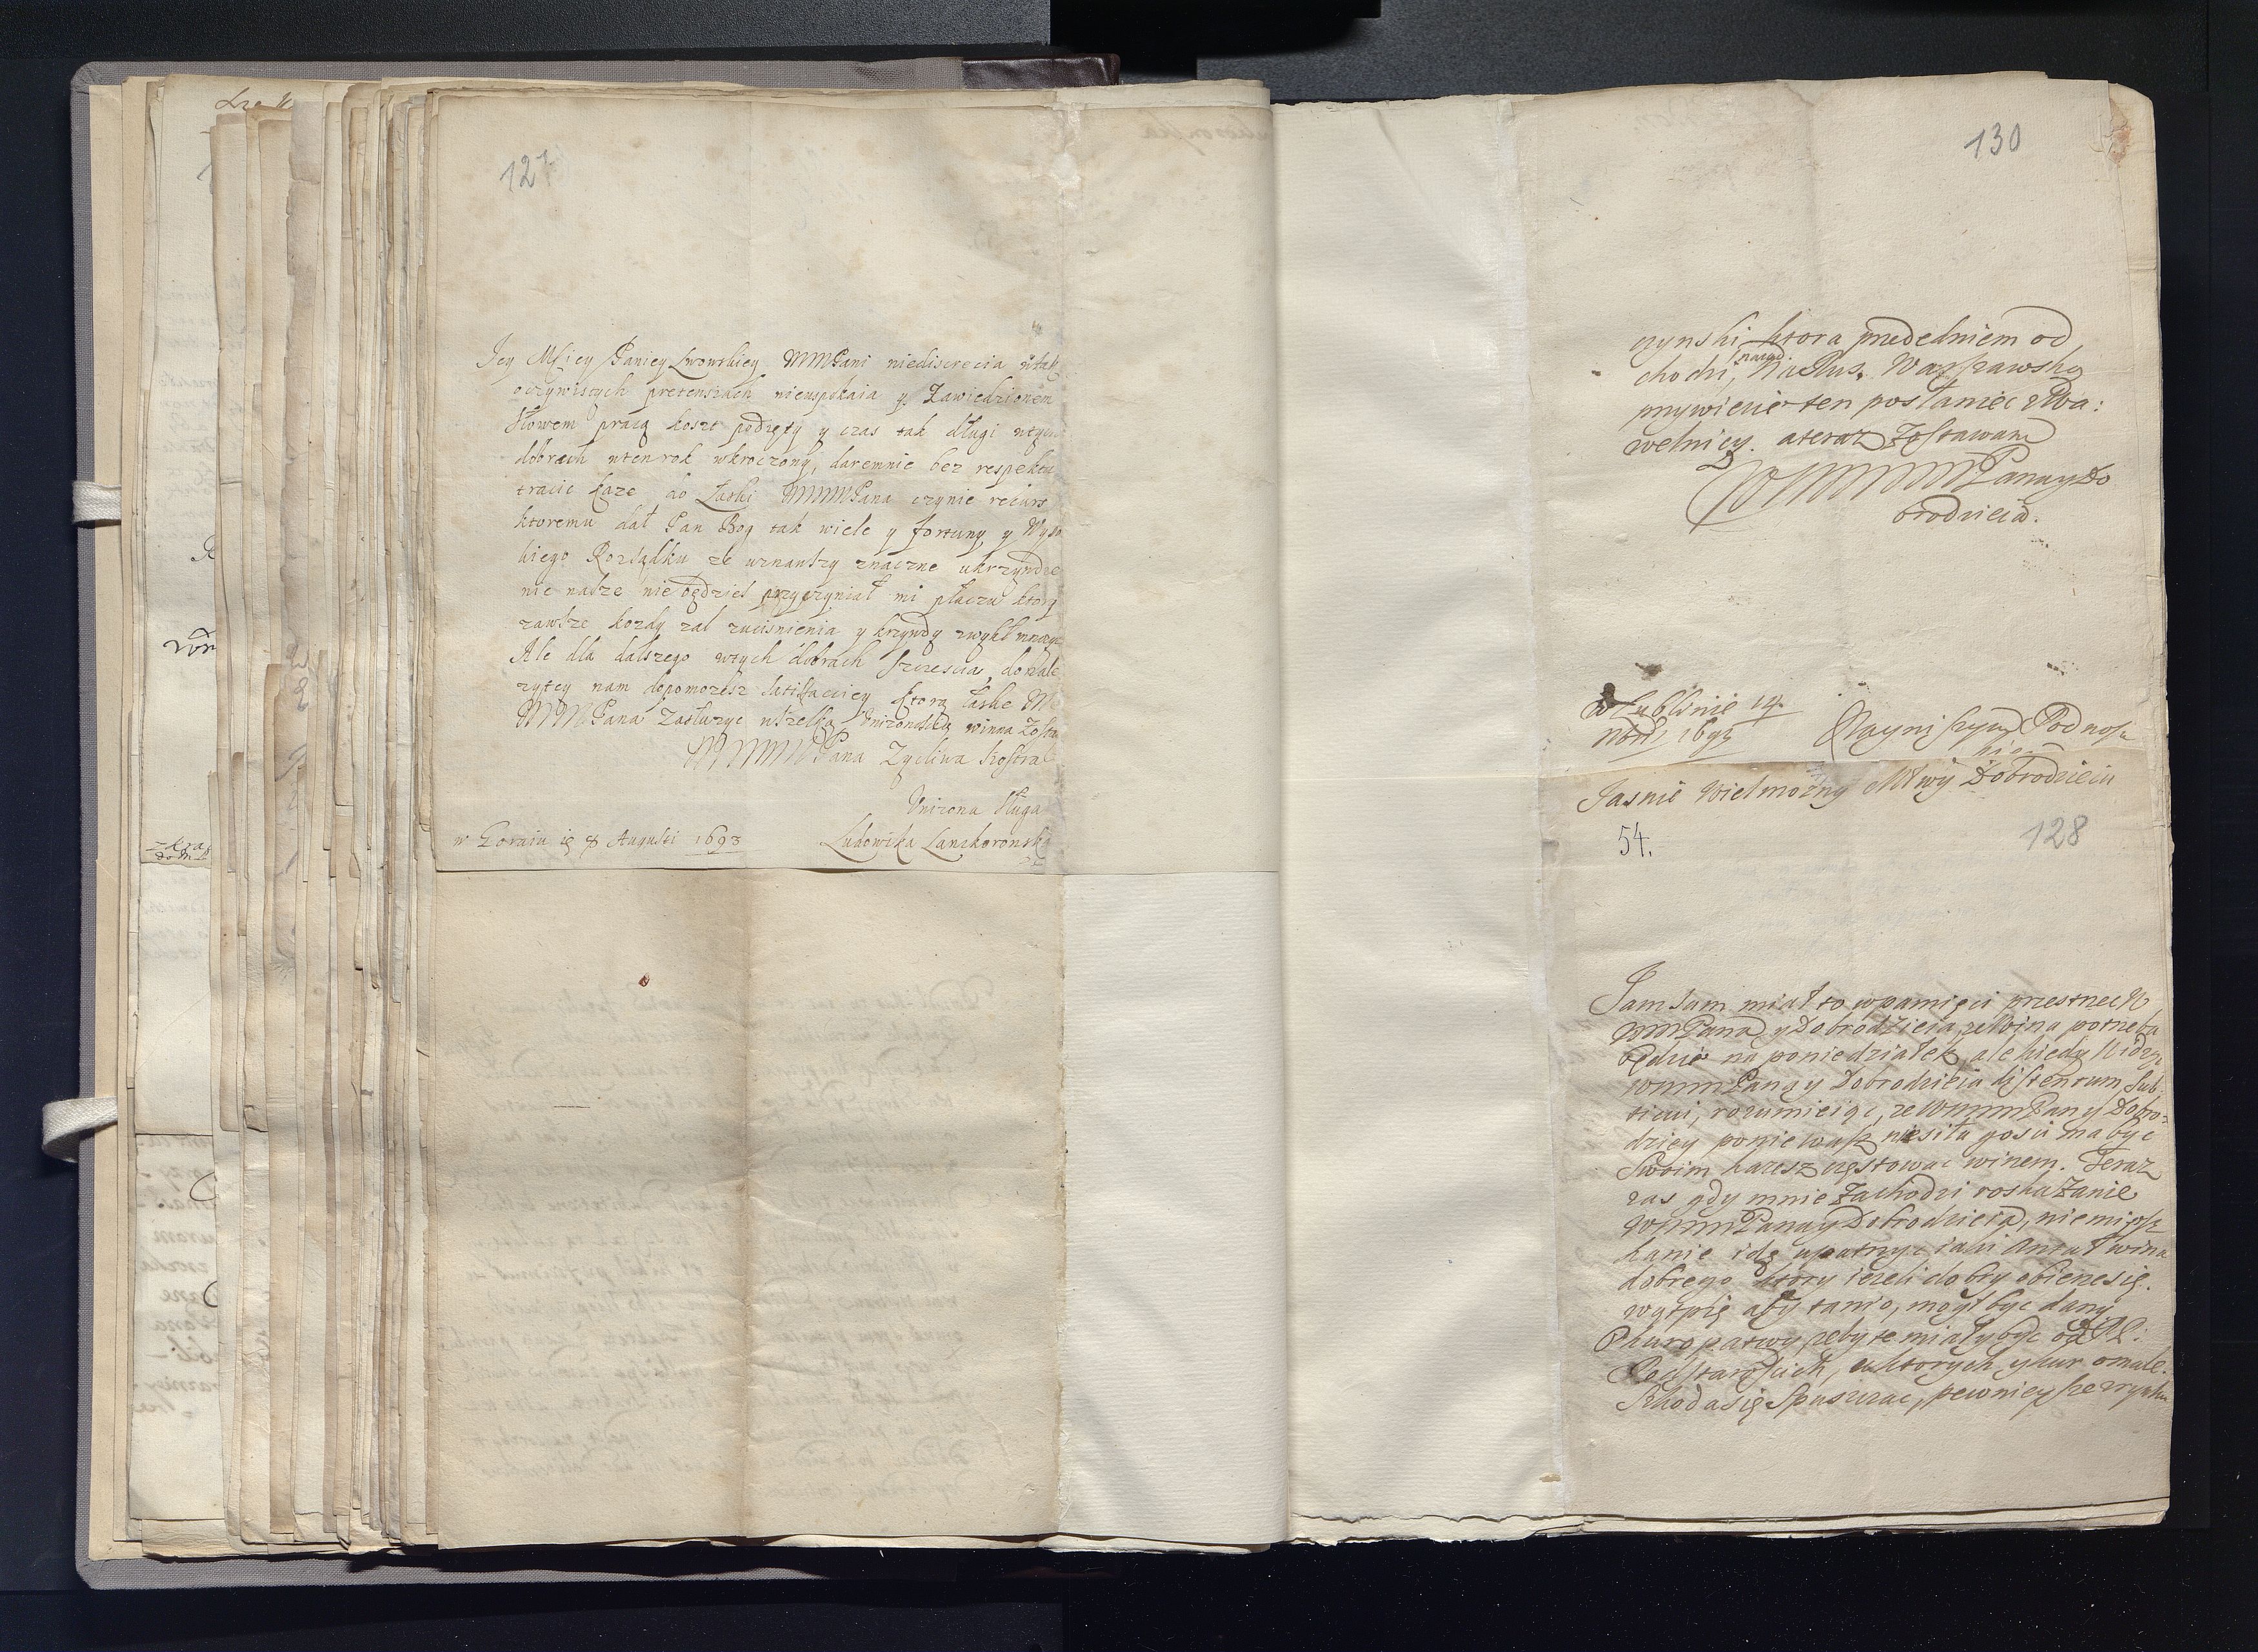 127
Jey Msciey Paniey Lwowskiey MMPani niediscrecia w tak
oczywistych pretensiach nieuspokaia y Zawiedzionem
słowem pracą koszt podięty y czas tak długi wtych
dobrach wten rok wkroczony, daremnie bez respektu
tracic każe do Łaski MMMPana czynie recurs
ktoremu dał Pan Bog tak wiele y fortuny y Wyso
kiego Rozsądku ze uznawszy znaczne ukrzywdze
nie nasze nie będziesz przyczyniał mi płaczu ktory
zawsze kozdy zal zucisnienia y krzywdy zwykł mnozyc
Ale dla dalszego wtych dobrach szczescia, do nale
zytey nam dopomozesz satisfactiey ktorą łaske M
MMPana Zasłuzyc wszelką Unizonością winna Zosta
MMMPana Zycliwa Siostra
Unizona sługa
w Goraiu ię 8 Augusti 1693
Ludowika Lanckoronska
130
czynski ktora przededniem od
chodzi, nazad Warszawską
przywiezie ten posłaniec
welnicy. a teraz Zostawam
WMMMPana y Do
brodzieia.
w Lublinie 14.
Nayniszym Podnosz
kiem
Jasnie Wielmozny Młwy Dobrodzieiu
54.
128
Jam sam miał to wpamięci przestrzedz W
MMPana y Dobrodzieia, ze Wina potrzeba
będzie na poniedziałek, ale kiedy Widzę
WMMPana y Dobrodzieia distentum sub
ticui, rozumieiąc, ze WMMMPan y Dobro-
dziey poniewasz niesiła gosci ma byc
Swoim kazesz częstowac winem. Teraz
zas gdy mnie Zachodzi roskazanie
WMMPana y Dobrodzieia, niemiesz
kanie idę upatrzyc iaki Antał wina
dobrego ktory iezeli dobry obierze się.
wątpię aby tanio, mogł byc dany
Phuropatwy zeby te miały byc od PP:
Podstaroscich, u ktorych y kur omale.
Szkoda się Spuszczac, pewniey sze zrynku